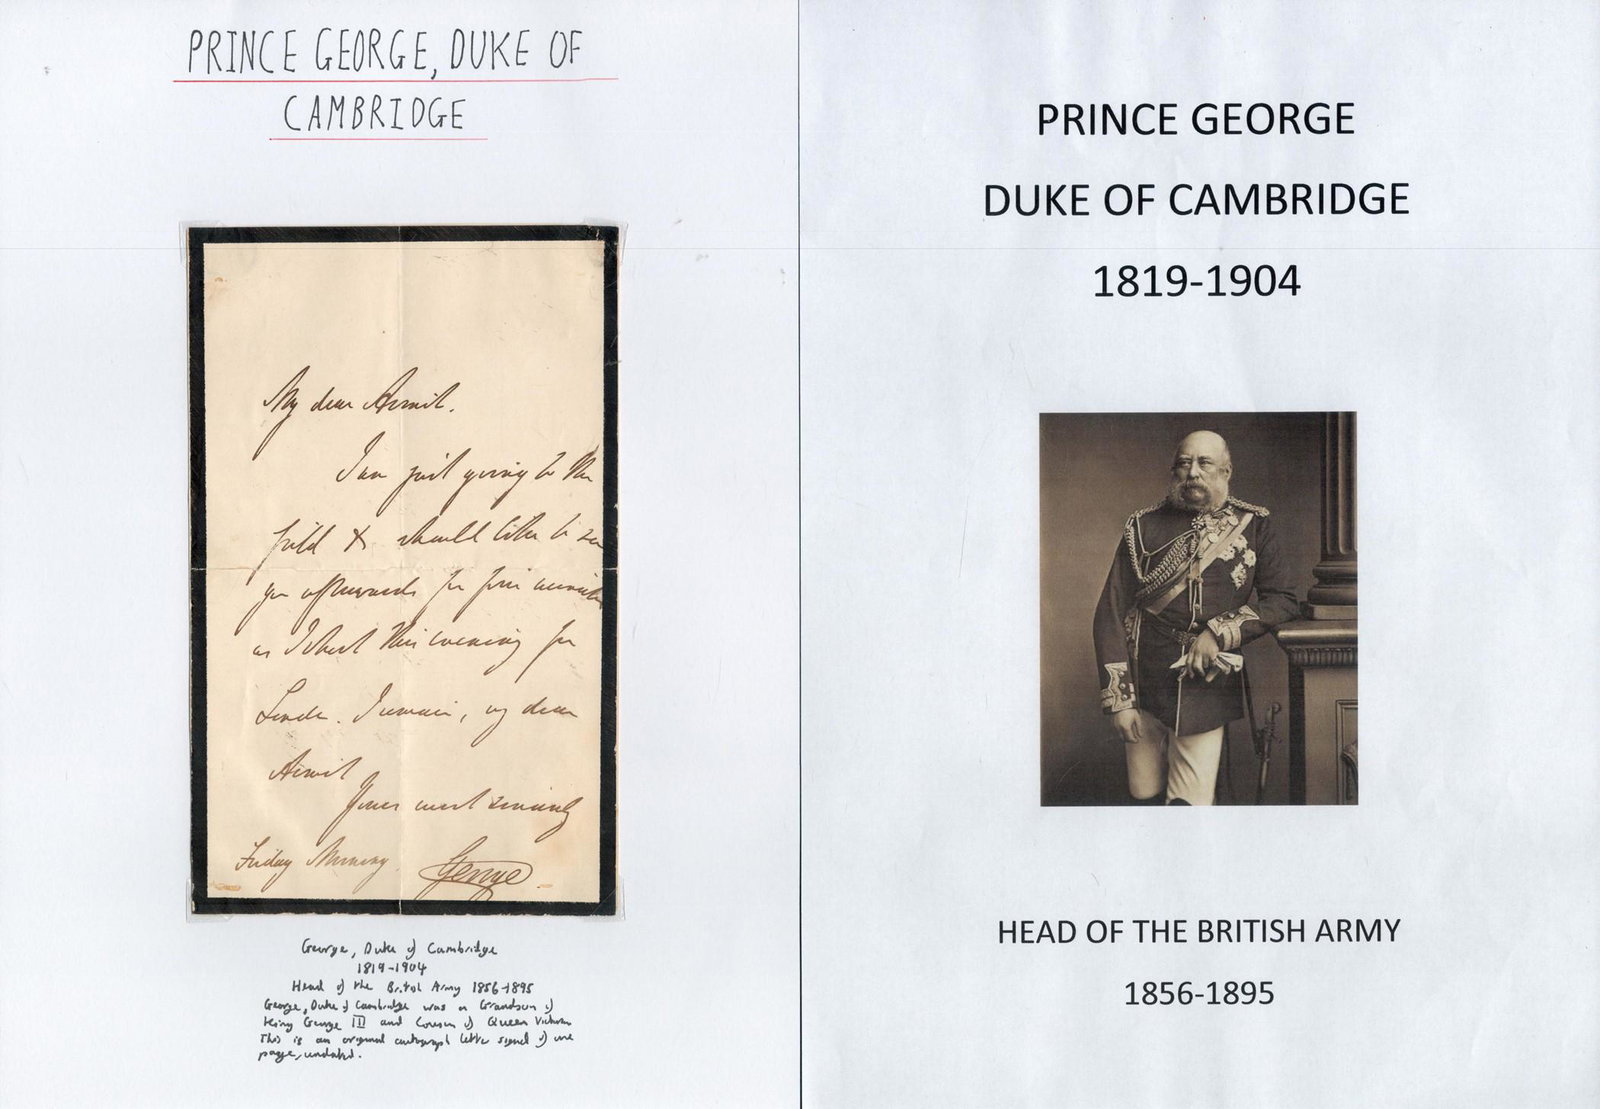 PRINCE GEORGE, DUKE OF
CAMBRIDGE
My dear Armit.
I am just going to the
field & should like to see
you afterwards for five minutes
as I start this evening for
London. I remain, my dear
Armit
Yours most sincerely
Friday Morning. George
George, Duke of Cambridge
1819-1904
Head of the British Army 1856-1895
George, Duke of Cambridge was a Grandson of
King George III and Cousin of Queen Victoria
This is an original autograph letter signed of one
page, undated.
PRINCE GEORGE
DUKE OF CAMBRIDGE
1819-1904
HEAD OF THE BRITISH ARMY
1856-1895